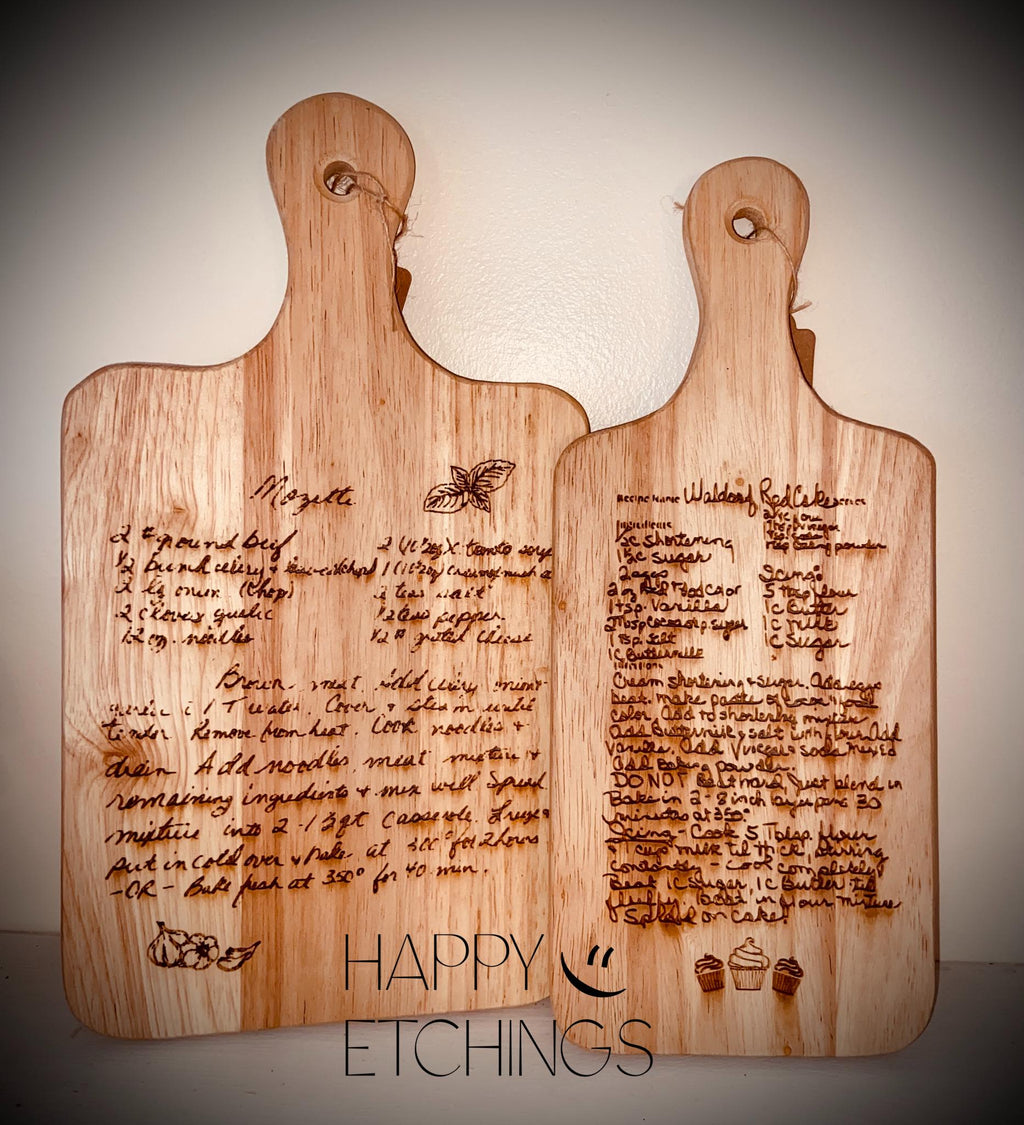 Mozette
2 # ground beef
1/2 bunch celery +
2 lg onion (chop)
2 cloves garlic
12 oz. noodles
2 (10 1/2 oz) tomato soup
2 teas salt
1/2 teas pepper
1/2 # grated cheese
Brown meat, Add celery onion
garlic 1 T water. Cover + steam until
tender Remove from heat. Cook noodles +
drain Add noodles, meat mixture +
remaining ingredients + mix well Spread
mixture into 2 - 1 1/2 qt Casserole. Freeze
Put in cold oven + bake at 300° for 2 hours
-OR- Bake fresh at 350° for 40 min.
Recipe Name Waldorf Red Cake
Ingredients
1/2 C Shortening
1 1/2 C Sugar
2 eggs
2 oz Red Food Color
1 tsp. Vanilla
2 Tbsp Cocoa
1 tsp. Salt
1 C Buttermilk
2 1/4 C flour
1 Tbsp vinegar
1 tsp. Soda
baking powder
Icing:
5 Tbsp flour
1 C Butter
1 C Milk
1 C Sugar
Cream shortening + sugar. Add eggs
beat. Make paste of cocoa + food
color. Add to shortening mixture
Add Buttermilk + salt with flour. Add
Vanilla. Add Vinegar + soda mixed
add Baking powder.
DO NOT Beat hard. Just blend in
Bake in 2 - 8 inch layer pans 30
minutes at 350°
Icing - Cook 5 Tblsp. flour
1 cup milk til thick, stirring
constantly - Cool completely
Beat 1C Sugar, 1C Butter til
fluffy. Beat in flour mixture
Spread on Cake!
HAPPY
ETCHINGS